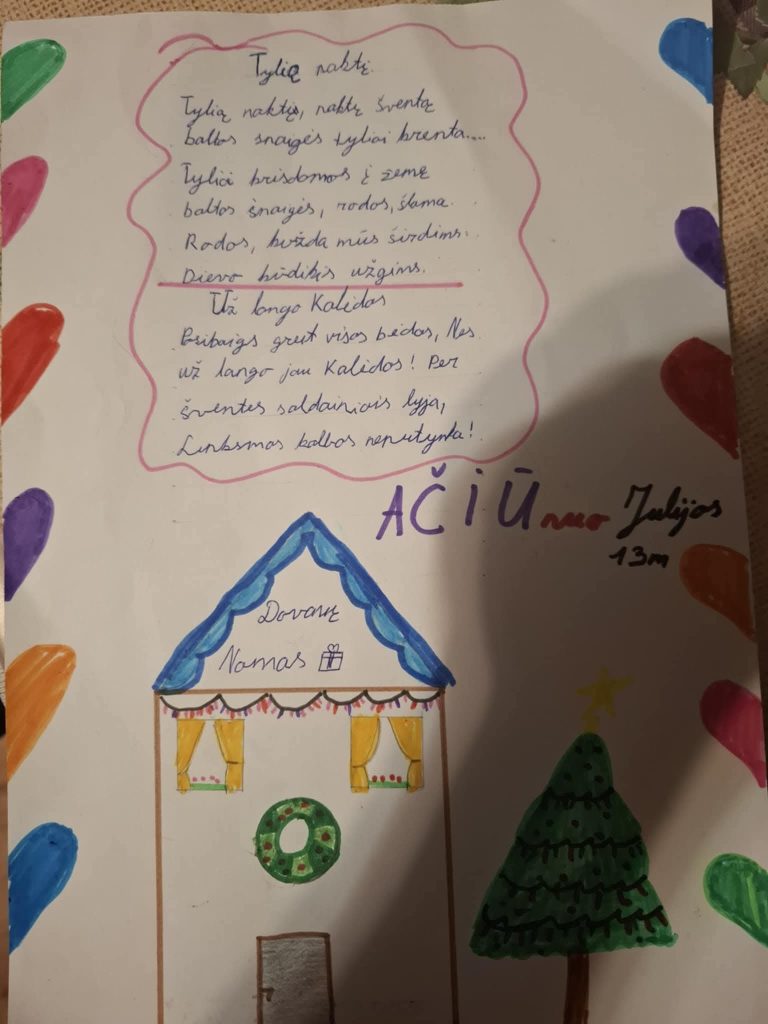 Tylią naktį
Tylią naktįs, naktį šventą
baltos snaigės tyliai krenta....
Tyliai krisdamos į žemę
baltos snaigės, rodos, šlama.
Rodos, kužda mūs širdims:
Dievo kūdikis užgims.
Už lango Kalėdos
Pasibaigs greit visos bėdos, Nes
už lango jau Kalėdos! Per
šventes saldainiais lyja,
Linksmos kalbos nenutyla!
AČIŪ nuo Julijos
13m
Dovanų
Namas